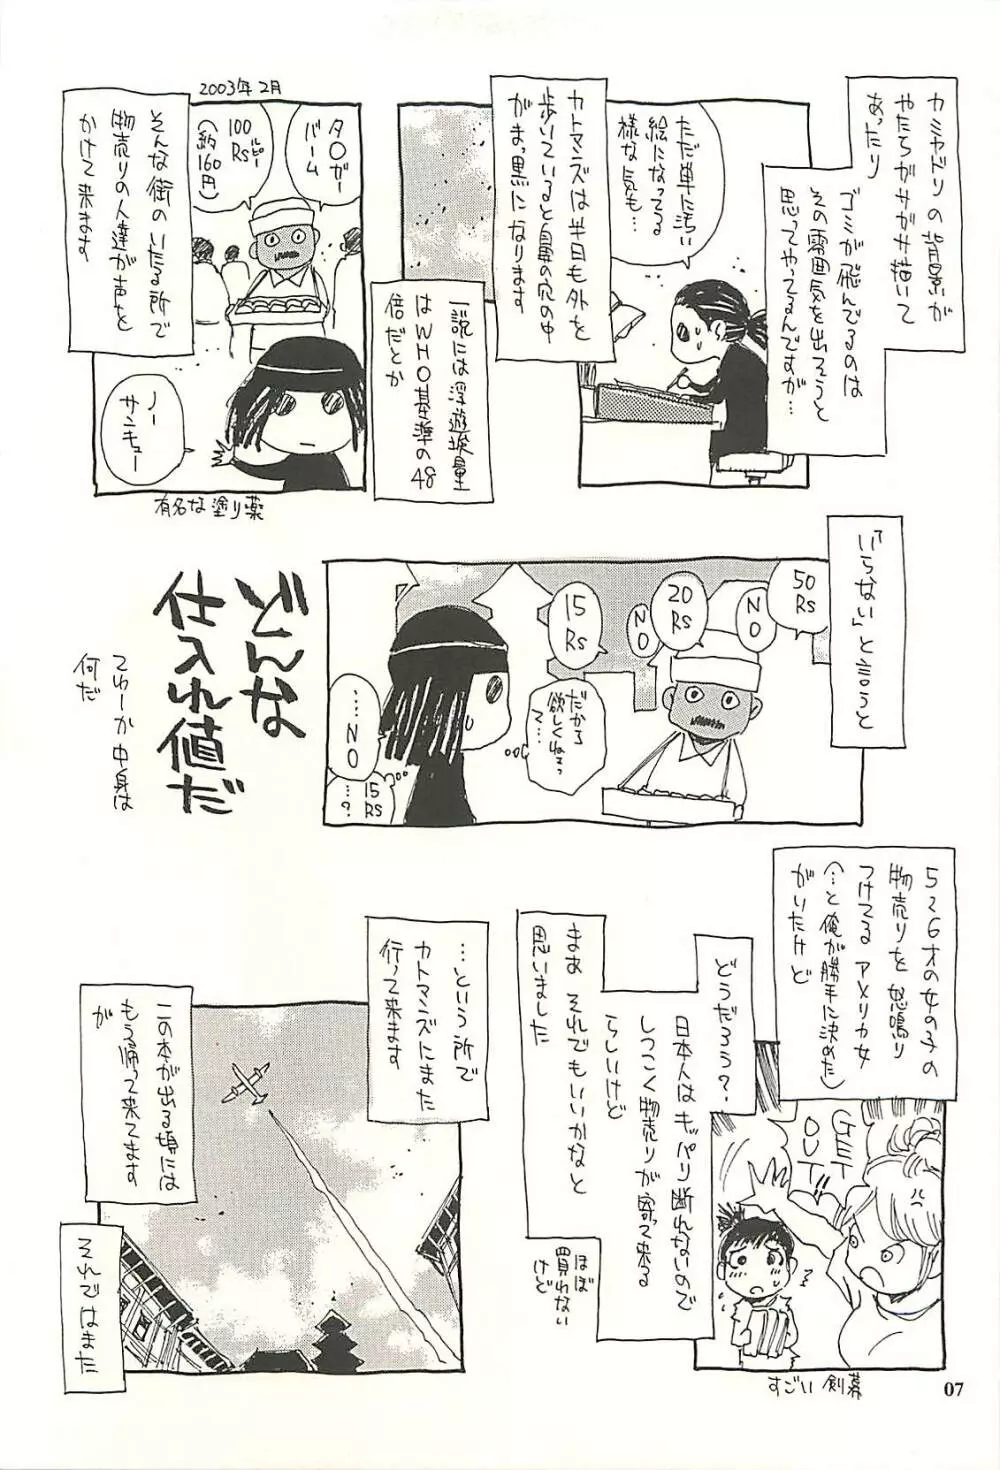 カミヤドリの背景が
やたらガサガサ描いて
あったり
ゴミが飛んでるのは
その雰囲気を出そうと
思ってやってるんですが…
ただ単に汚い
絵になってる
様な気も…
カトマンズは半日も外を
歩いていると鼻の穴の中
がまっ黒になります
一説には浮遊塵量
はWHO基準の48
倍だとか
2003年2月
そんな街のいたる所で
物売りの人達が声を
かけて来ます
タ〇ガー
バーム
100
Rs
ルピー
(約160円)
ノー
サンキュー
有名な塗り薬
「いらない」と言うと
50
Rs
NO
20
Rs
NO
15
Rs
だから
欲しくねえっ
て…
……NO
15
Rs
…?
どんな
仕入れ値だ
てゆーか中身は
何だ
5〜6才の女の子の
物売りを怒鳴り
つけてるアメリカ女
(…と俺が勝手に決めた)
がいたけど
GET
OUT
すごい剣幕
どうだろう?
日本人はキッパリ断れないので
しつこく物売りが寄って来る
らしいけど
まあ それでもいいかなと
思いました
ほぼ
買わない
けど
…という所で
カトマンズにまた
行って来ます
この本が出る頃には
もう帰って来てます
が
それではまた
07